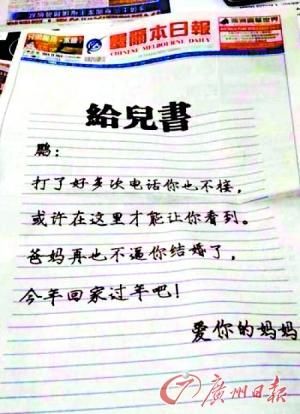 墨爾本日報
CHINESE MELBOURNE DAILY
給兒書
鹏：
打了好多次电话你也不接，
或许在这里才能让你看到。
爸妈再也不逼你结婚了，
今年回家过年吧！
爱你的妈妈
廣州日報